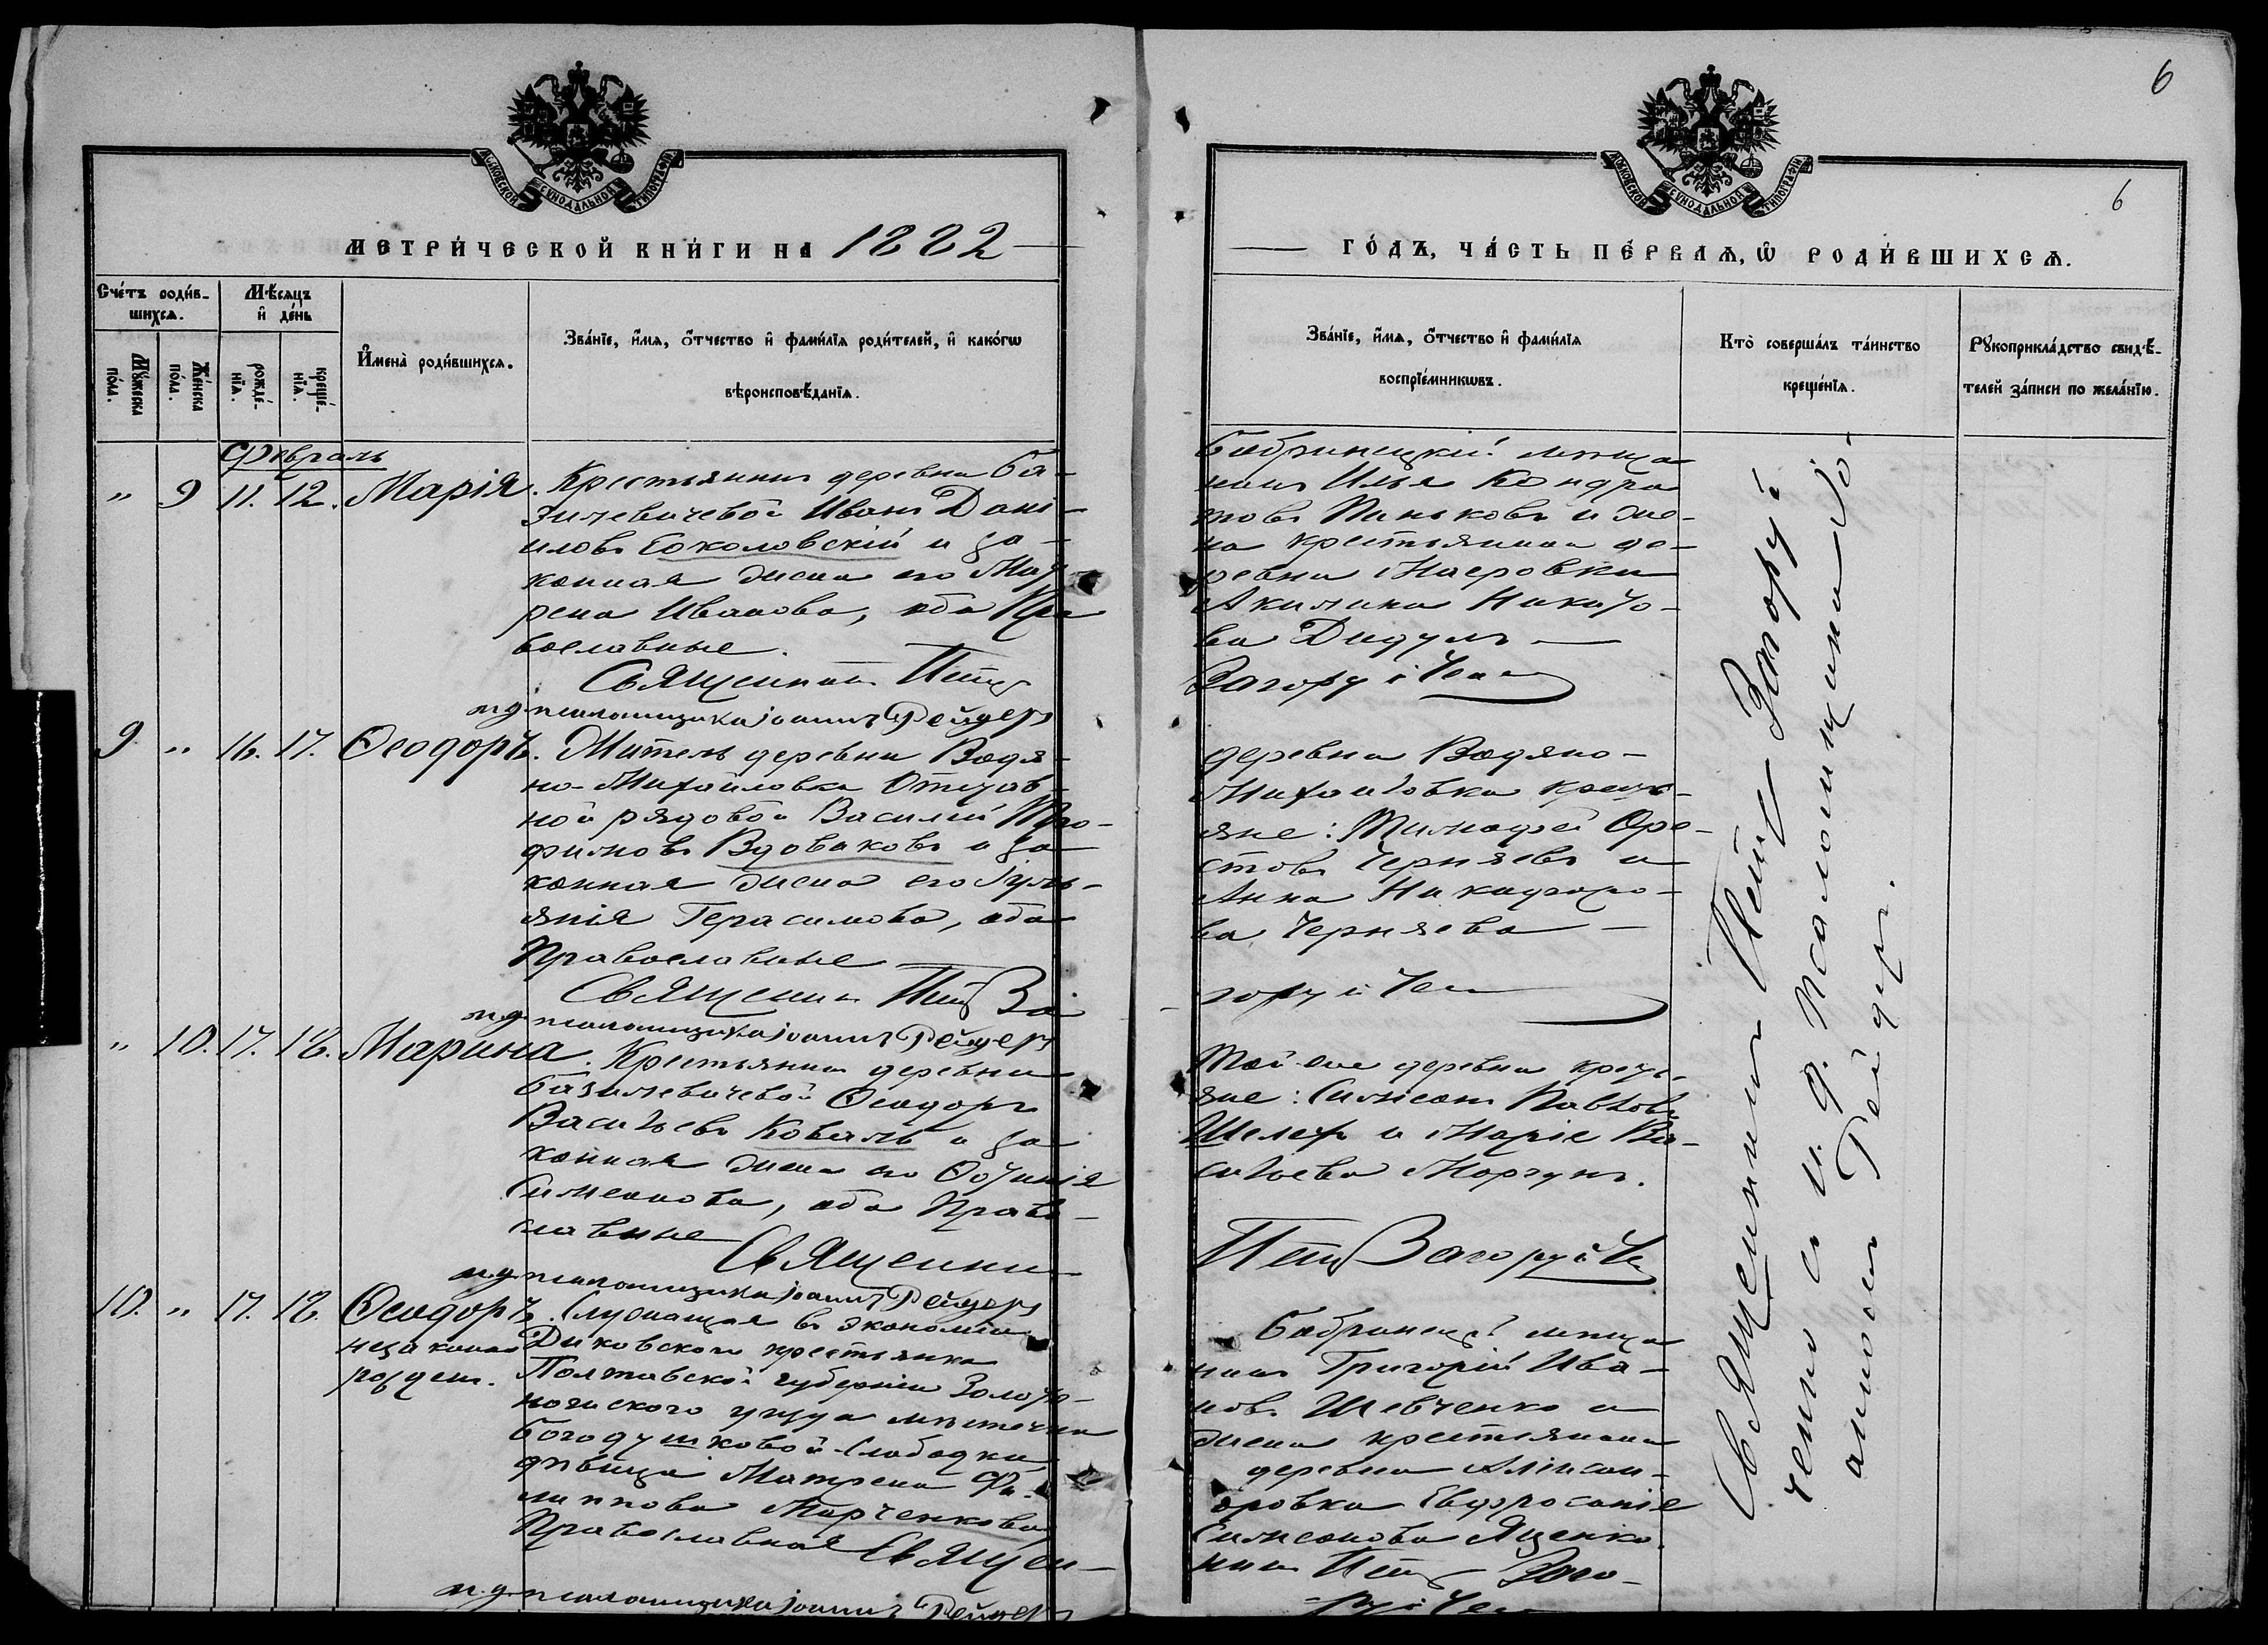 6
6
МОСКОВСКОЙ СѴНОДАЛЬНОЙ ТИПОГРАФІИ
МОСКОВСКОЙ СѴНОДАЛЬНОЙ ТИПОГРАФІИ
МЕТРИ́ЧЕСКОЙ КНИ́ГИ НА 1882
ГО́ДЪ, ЧА́СТЬ ПЕ́РВАѦ, Ѡ҆ РОДИ́ВШИХСѦ.
Сче́тъ роди́в-
шихсѧ.
Мꙋ́жеска по́ла.
Же́нска по́ла.
Мѣ́сѧцъ
и҆ де́нь
рожде́-
нїѧ.
креще́-
нїѧ.
И҆мена̀ роди́вшихсѧ.
Зва́нїе, и҆́мѧ, ѻ҆́тчество и҆ фами́лїѧ роди́телей, и҆ како́гѡ
вѣроисповѣ́данїѧ.
Зва́нїе, и҆́мѧ, ѻ҆́тчество и҆ фами́лїѧ
воспрїе́мникѡвъ.
Кто̀ соверша́лъ та́инство
креще́нїѧ.
Рꙋкоприкла́дство свидѣ́-
телей за́писи по жела́нїю.
Февраль
" 9 11. 12. Марія.
Крестьянинъ деревни Ба-
зилевичевой Иванъ Дани-
иловъ Соколовскій и за-
конная жена его Мат
рена Иванова, оба Пра
вославные.
Священникъ Петръ
и. д. псаломщика Іоаннъ Рейдеръ
Бобринецкій мѣща
нинъ Илья Кондра
товъ Паньковъ и же-
на крестьянина де-
ревни
Акилина
ва Дидукъ
Загоруйченко
9 " 16. 17. Ѳеодоръ.
Житель деревни Водя-
но-Михайловки Отстав-
ной рядовой Василій Тро-
фимовъ Вдоваковъ и за
конная жена его Іуль-
янія Герасимова, оба
Православные
Священникъ Петръ За
и. д. псаломщика Іоаннъ Рейдеръ
деревни Водяно-
Михайловки крестъ-
яне: Тимофей Оре-
стовъ Черняевъ и
Анна Никифоро-
ва Черняева
горуйченко
" 10. 17. 18. Марина.
Крестьянинъ деревни
Базилевичевой Ѳеодоръ
Васильевъ Коваль и за
конная жена его
Симеонова, оба Право-
славные
Священникъ
и. д. псаломщика Іоаннъ Рейдеръ
Той же деревни кресть-
яне: Симеонъ Павловъ
Шелестъ и Марія Ва-
сильева Моргунъ.
Петръ Загоруйче
10. " 17. 18. Ѳеодоръ
незакон
рожден.
Служащая въ экономіи
Диковского крестьянка
Полтавской губерніи Золото-
ношского уѣзда мѣстечка
Богодушковой-Слободки
дѣвица Матрена Фи-
липпова Марченкова
Православная Священ-
и. д. псаломщика Іоаннъ Рейдеръ
Бобринецкій мѣща
нинъ Григорій Ива-
новъ Шевченко и
жена крестьянина
деревни Алексан-
дровки Евфросинія
Симеонова Яценко.
никъ Петръ Заго-
руйчен
Священникъ Петръ Загоруй-
ченко съ и. д. псаломщика Іо-
анномъ Рейдеръ.